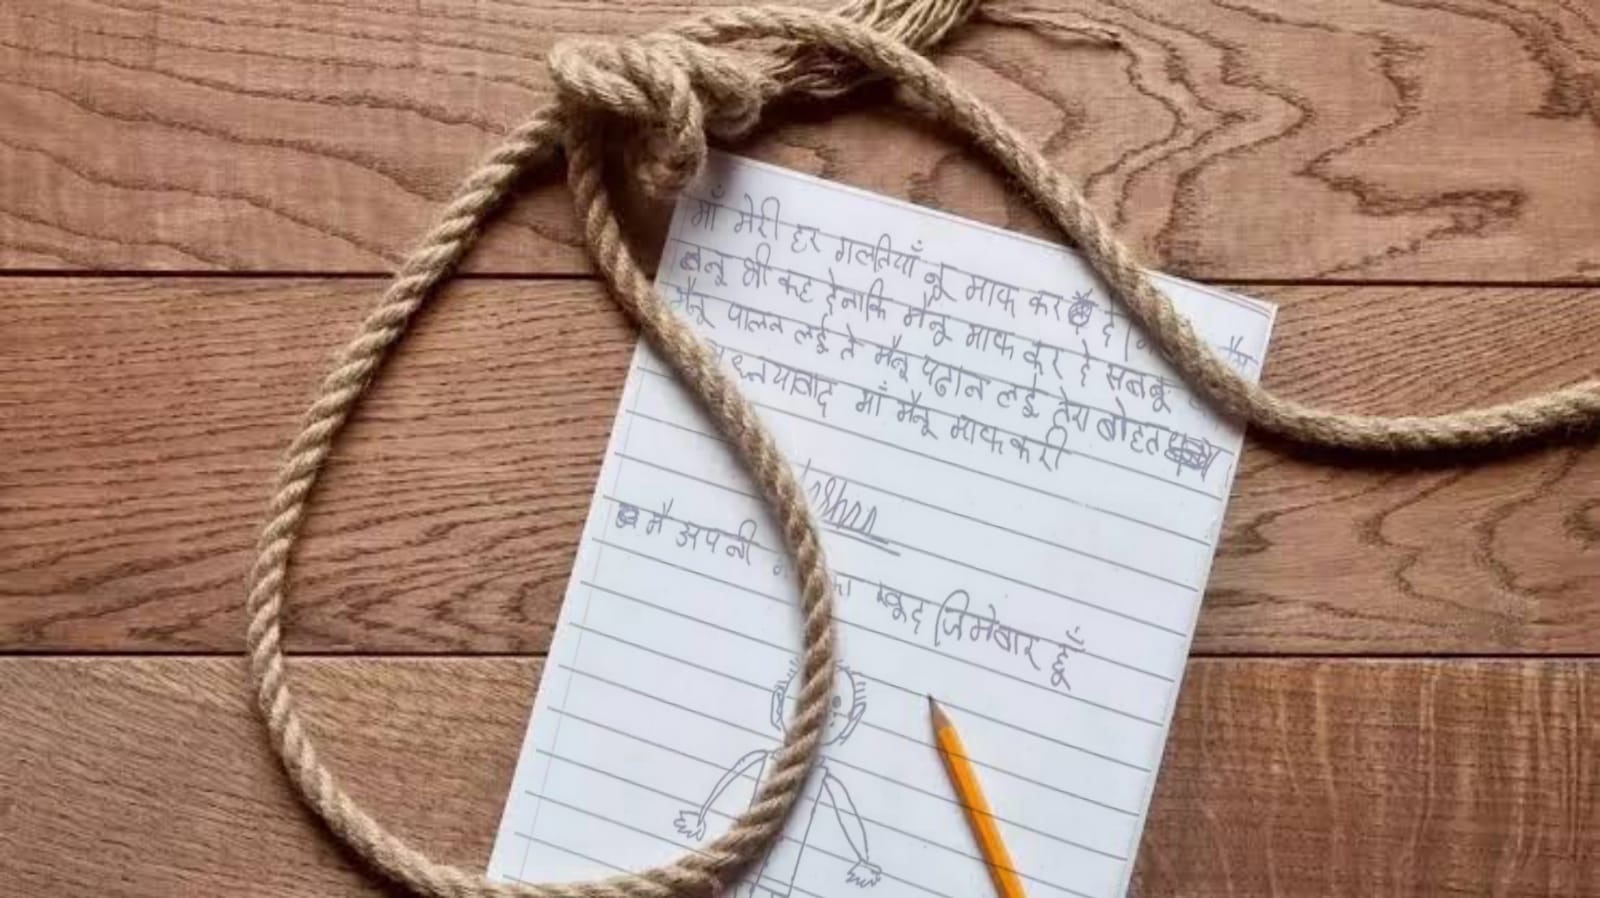 माँ मेरी हर गलतियाँ नू माफ कर दे
नू भी कह देनाकि मैनू माफ कर दे सबनू
मैनू पालन लई ते मैनू पढान लई तेरा बोहत
धन्यावाद माँ मैनू माफ करी
मै अपनी का खूद जिमेबार हूँ